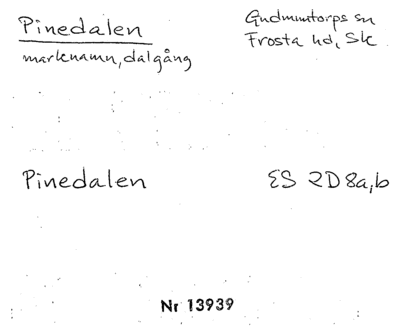 Pinedalen
Gudmuntorps sn
Frosta hd, Sk
marknamn, dalgång
Pinedalen
ES 2D8a,b
Nr 13939